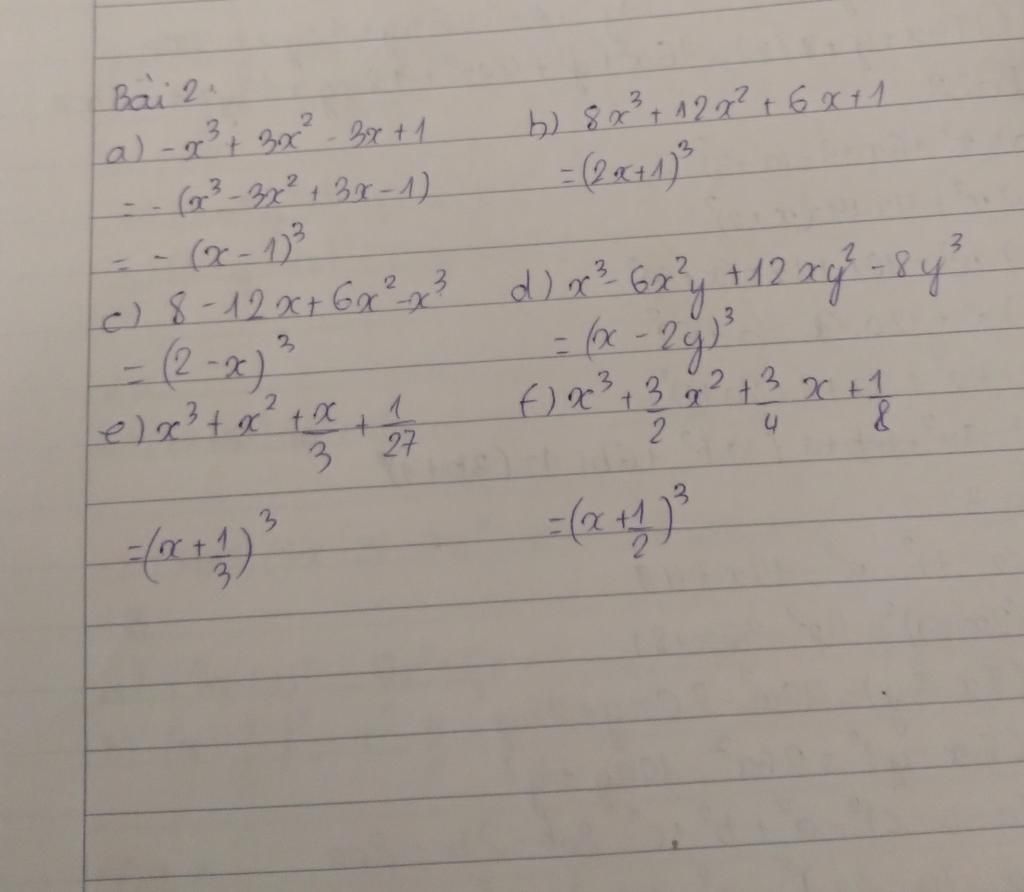 Bài 2.
a) -x³ + 3x² - 3x + 1
= - (x³ - 3x² + 3x - 1)
= - (x - 1)³
b) 8x³ + 12x² + 6x + 1
= (2x + 1)³
c) 8 - 12x + 6x² - x³
= (2 - x)³
d) x³ - 6x²y + 12xy² - 8y³
= (x - 2y)³
e) x³ + x² + x/3 + 1/27
= (x + 1/3)³
f) x³ + 3/2 x² + 3/4 x + 1/8
= (x + 1/2)³